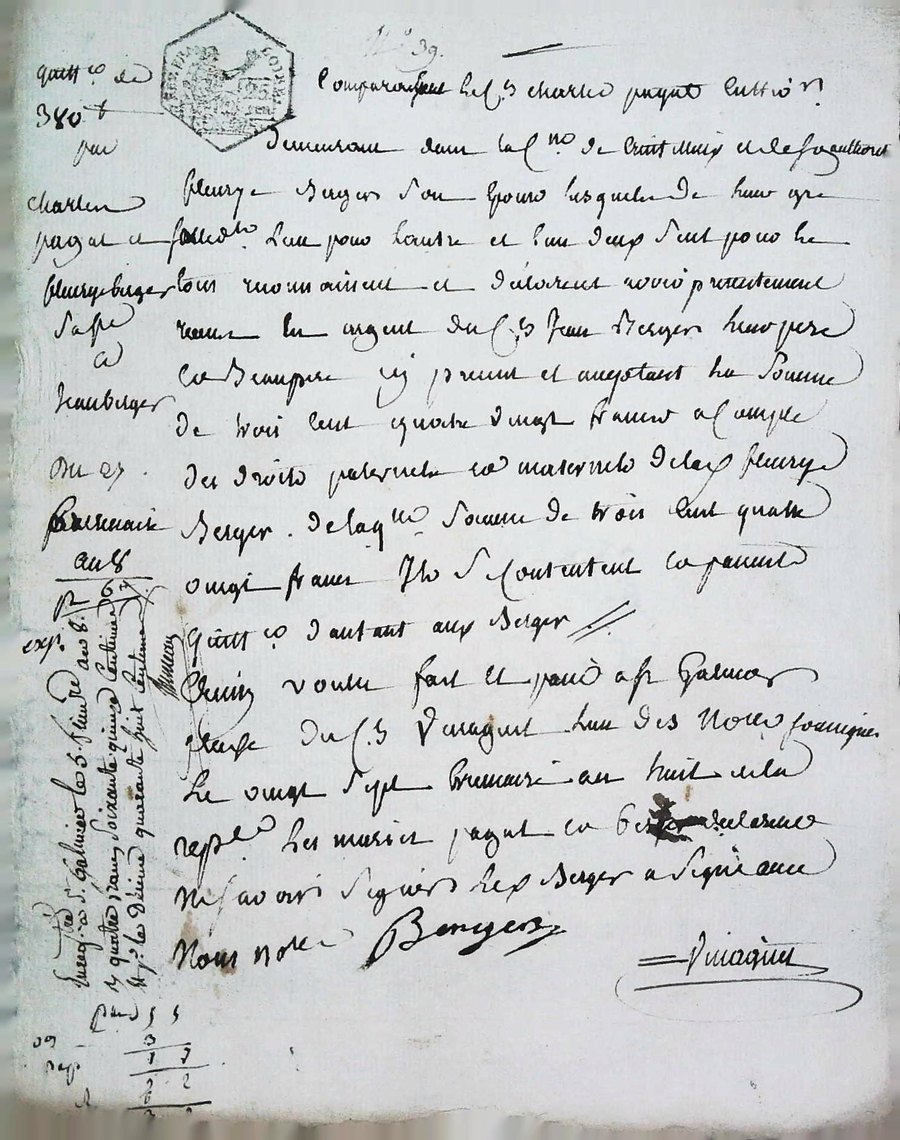 N.° 39.
quitt.ce de
380 #
par
charles
pagat et
fleurye berger
sa fe
a
Jean berger
Du 27
brumaire
an 8
exp.
Comparaissent le C.en charles pagat cultiv.r
demeurant dans la C.ne de et de son authorité
fleurye Berger son épouse lesquels de leur gré
solid.t l'un pour l'autre et l'un d'eux seul pour le
tous reconnaissent et déclarent avoir présentement
reçu en argent du C.en Jean Berger leur père
et Beaupère icy présent et acceptant la somme
de trois cent quatre vingt francs a Compte
des droits paternels et maternels de la d. fleurye
Berger. de laq.lle somme de trois cent quatre
vingt francs Ils se Contentent et passent
quitt.ce d'autant aux Berger //
Ainsy voulu fait et passé a st Galmier
étude du C.en Vinagret l'un des Not.res soussignés
Le vingt sept brumaire an huit de la
rep.e Les mariés pagat et Berger déclaré
ne savoir signer le d. Berger a signé avec
Nous not.re
Berger
Vinagret
Enreg.é a St. Galmier le 5. frim.re an 8. R
quatre francs soixante quinze Centimes
le décime quarante huit Centimes